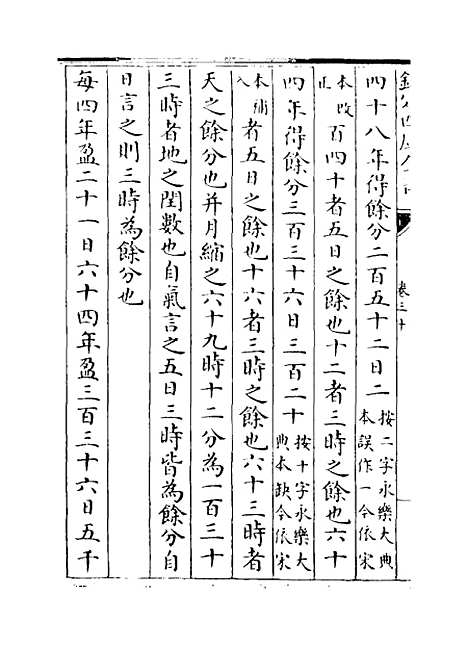 卷三十
四十八年得餘分二百五十二日二按二字永樂大典本誤作一今依宋
本改正百四十者五日之餘也十二者三時之餘也六十
四年得餘分三百三十六日三百二十按十字永樂大典本缺今依宋
本補入者五日之餘也十六者三時之餘也六十三時者
天之餘分也并月縮之六十九時十二分為一百三十
三時者地之閏數也自氣言之五日三時皆為餘分自
日言之則三時為餘分也
每四年盈二十一日六十四年盈三百三十六日五千